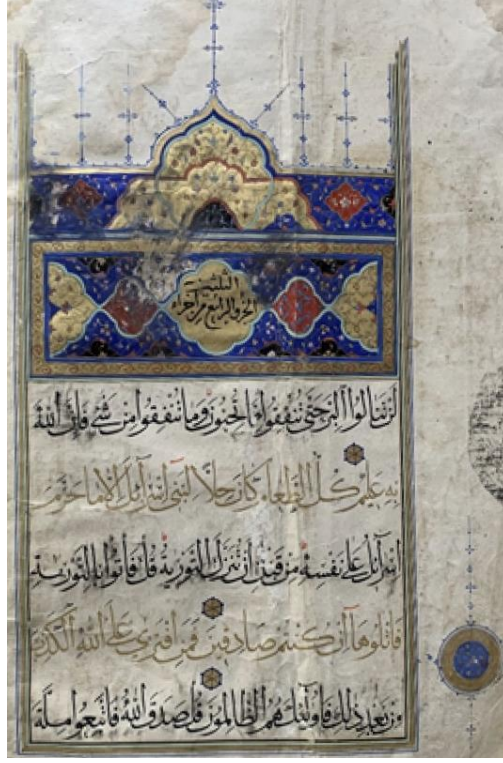 الثلثين
الجزو الرابع من اجزاء
لن تنالوا البر حتى تنفقوا مما تحبون وما تنفقوا من شئ فان الله
به عليم كل الطعام كان حلا لبنى اسرآئل الا ما حرم
اسرآئل على نفسه من قبل ان تنزل التورية قل فأتوا بالتورية
فاتلوها ان كنتم صادقين فمن افترى على الله الكذب
من بعد ذلك فاولئك هم الظالمون قل صدق الله فاتبعوا ملة